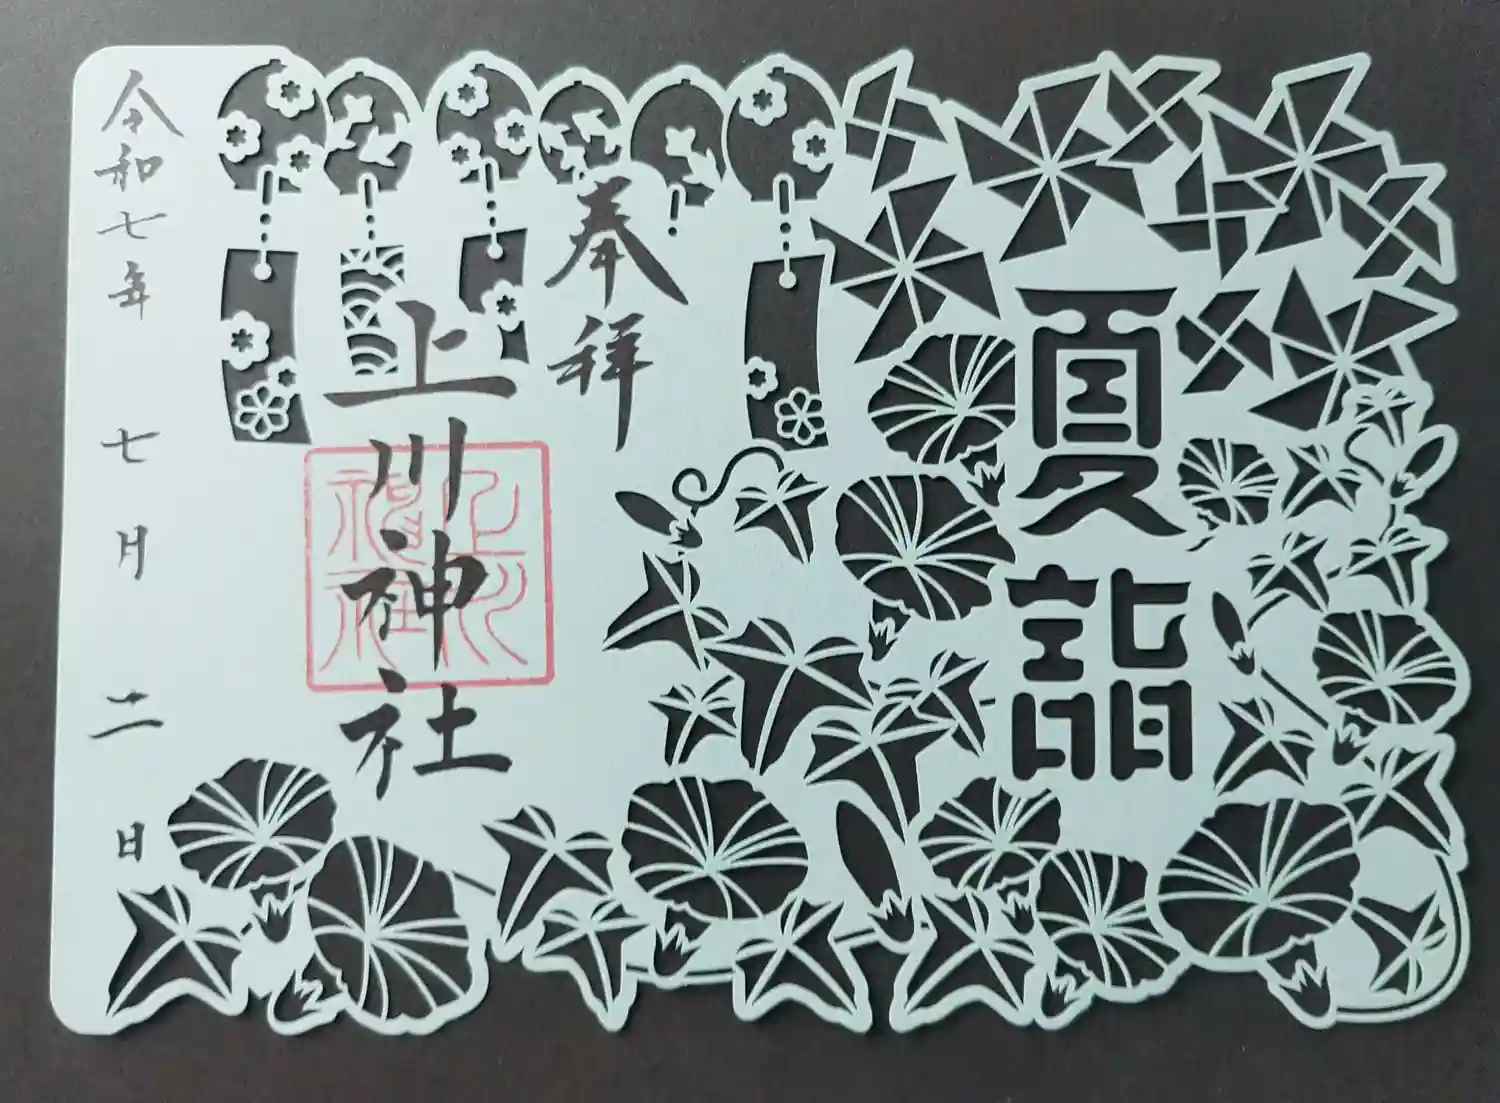 夏詣
奉拝
上川神社
上川神社
令和七年七月十二日